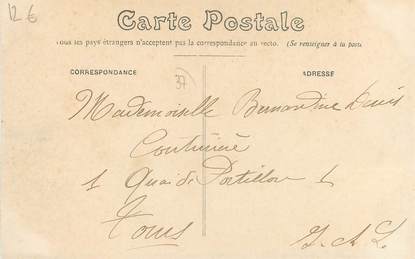 12 €
Carte Postale
Tous les pays étrangers n'acceptent pas la correspondance au recto. (Se renseigner à la poste
CORRESPONDANCE
37
ADRESSE
Mademoiselle Bernardine
Couturière
1 Quai de Portillon 1
Tours
I. & L.